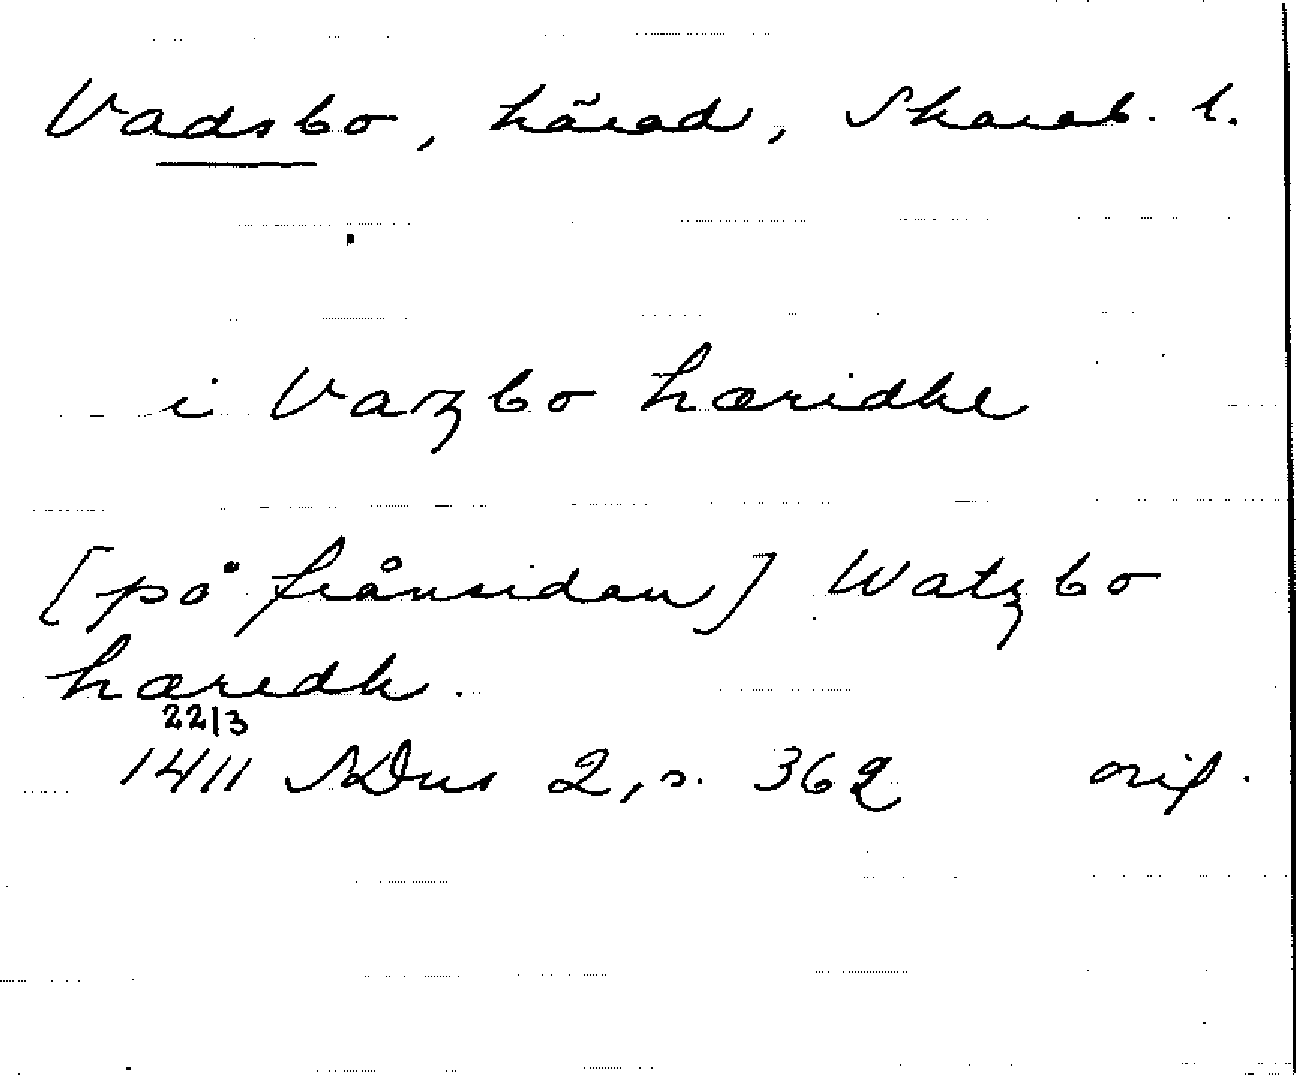 Vadsbo, härad, Skarab. l.
i Vazbo hæridhe
[på frånsidan] Watzbo
hæredh.
22/3
1411 SDns 2, s. 362 orig.